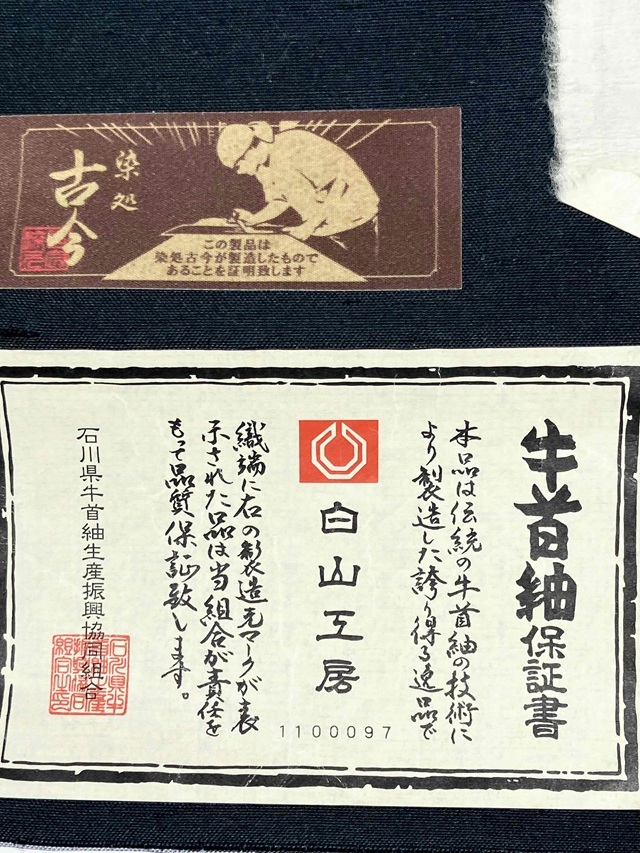 染処
古今
この製品は
染処古今が製造したもので
あることを証明致します
牛首紬保証書
本品は伝統の牛首紬の技術に
より製造した誇り得る逸品で
白山工房
織端に右の製造元マークが表
示された品は当組合が責任を
もって品質保証致します。
石川県牛首紬生産振興協同組合
1100097